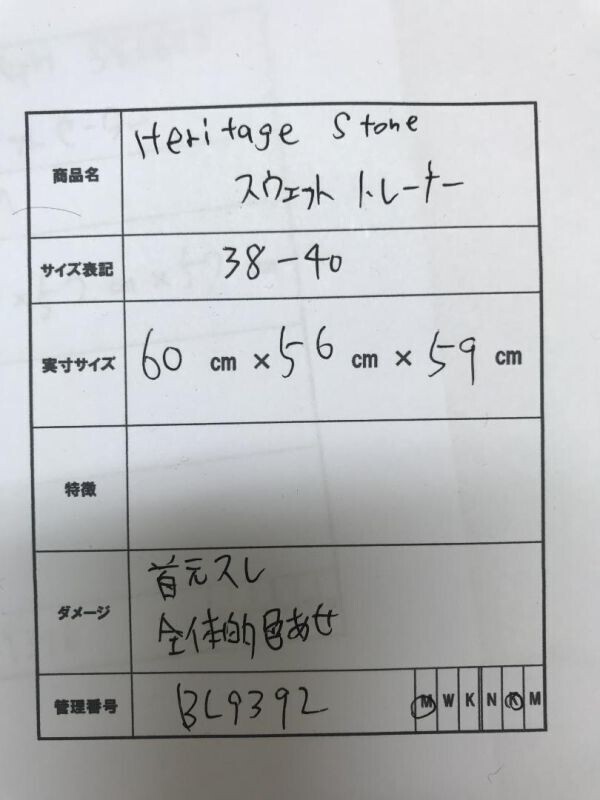 商品名
Heritage Stone
スウェット トレーナー
サイズ表記
38-40
実寸サイズ
60 cm × 56 cm × 59 cm
特徴
ダメージ
首元スレ
全体的色あせ
管理番号
BL9392
M W K N K M